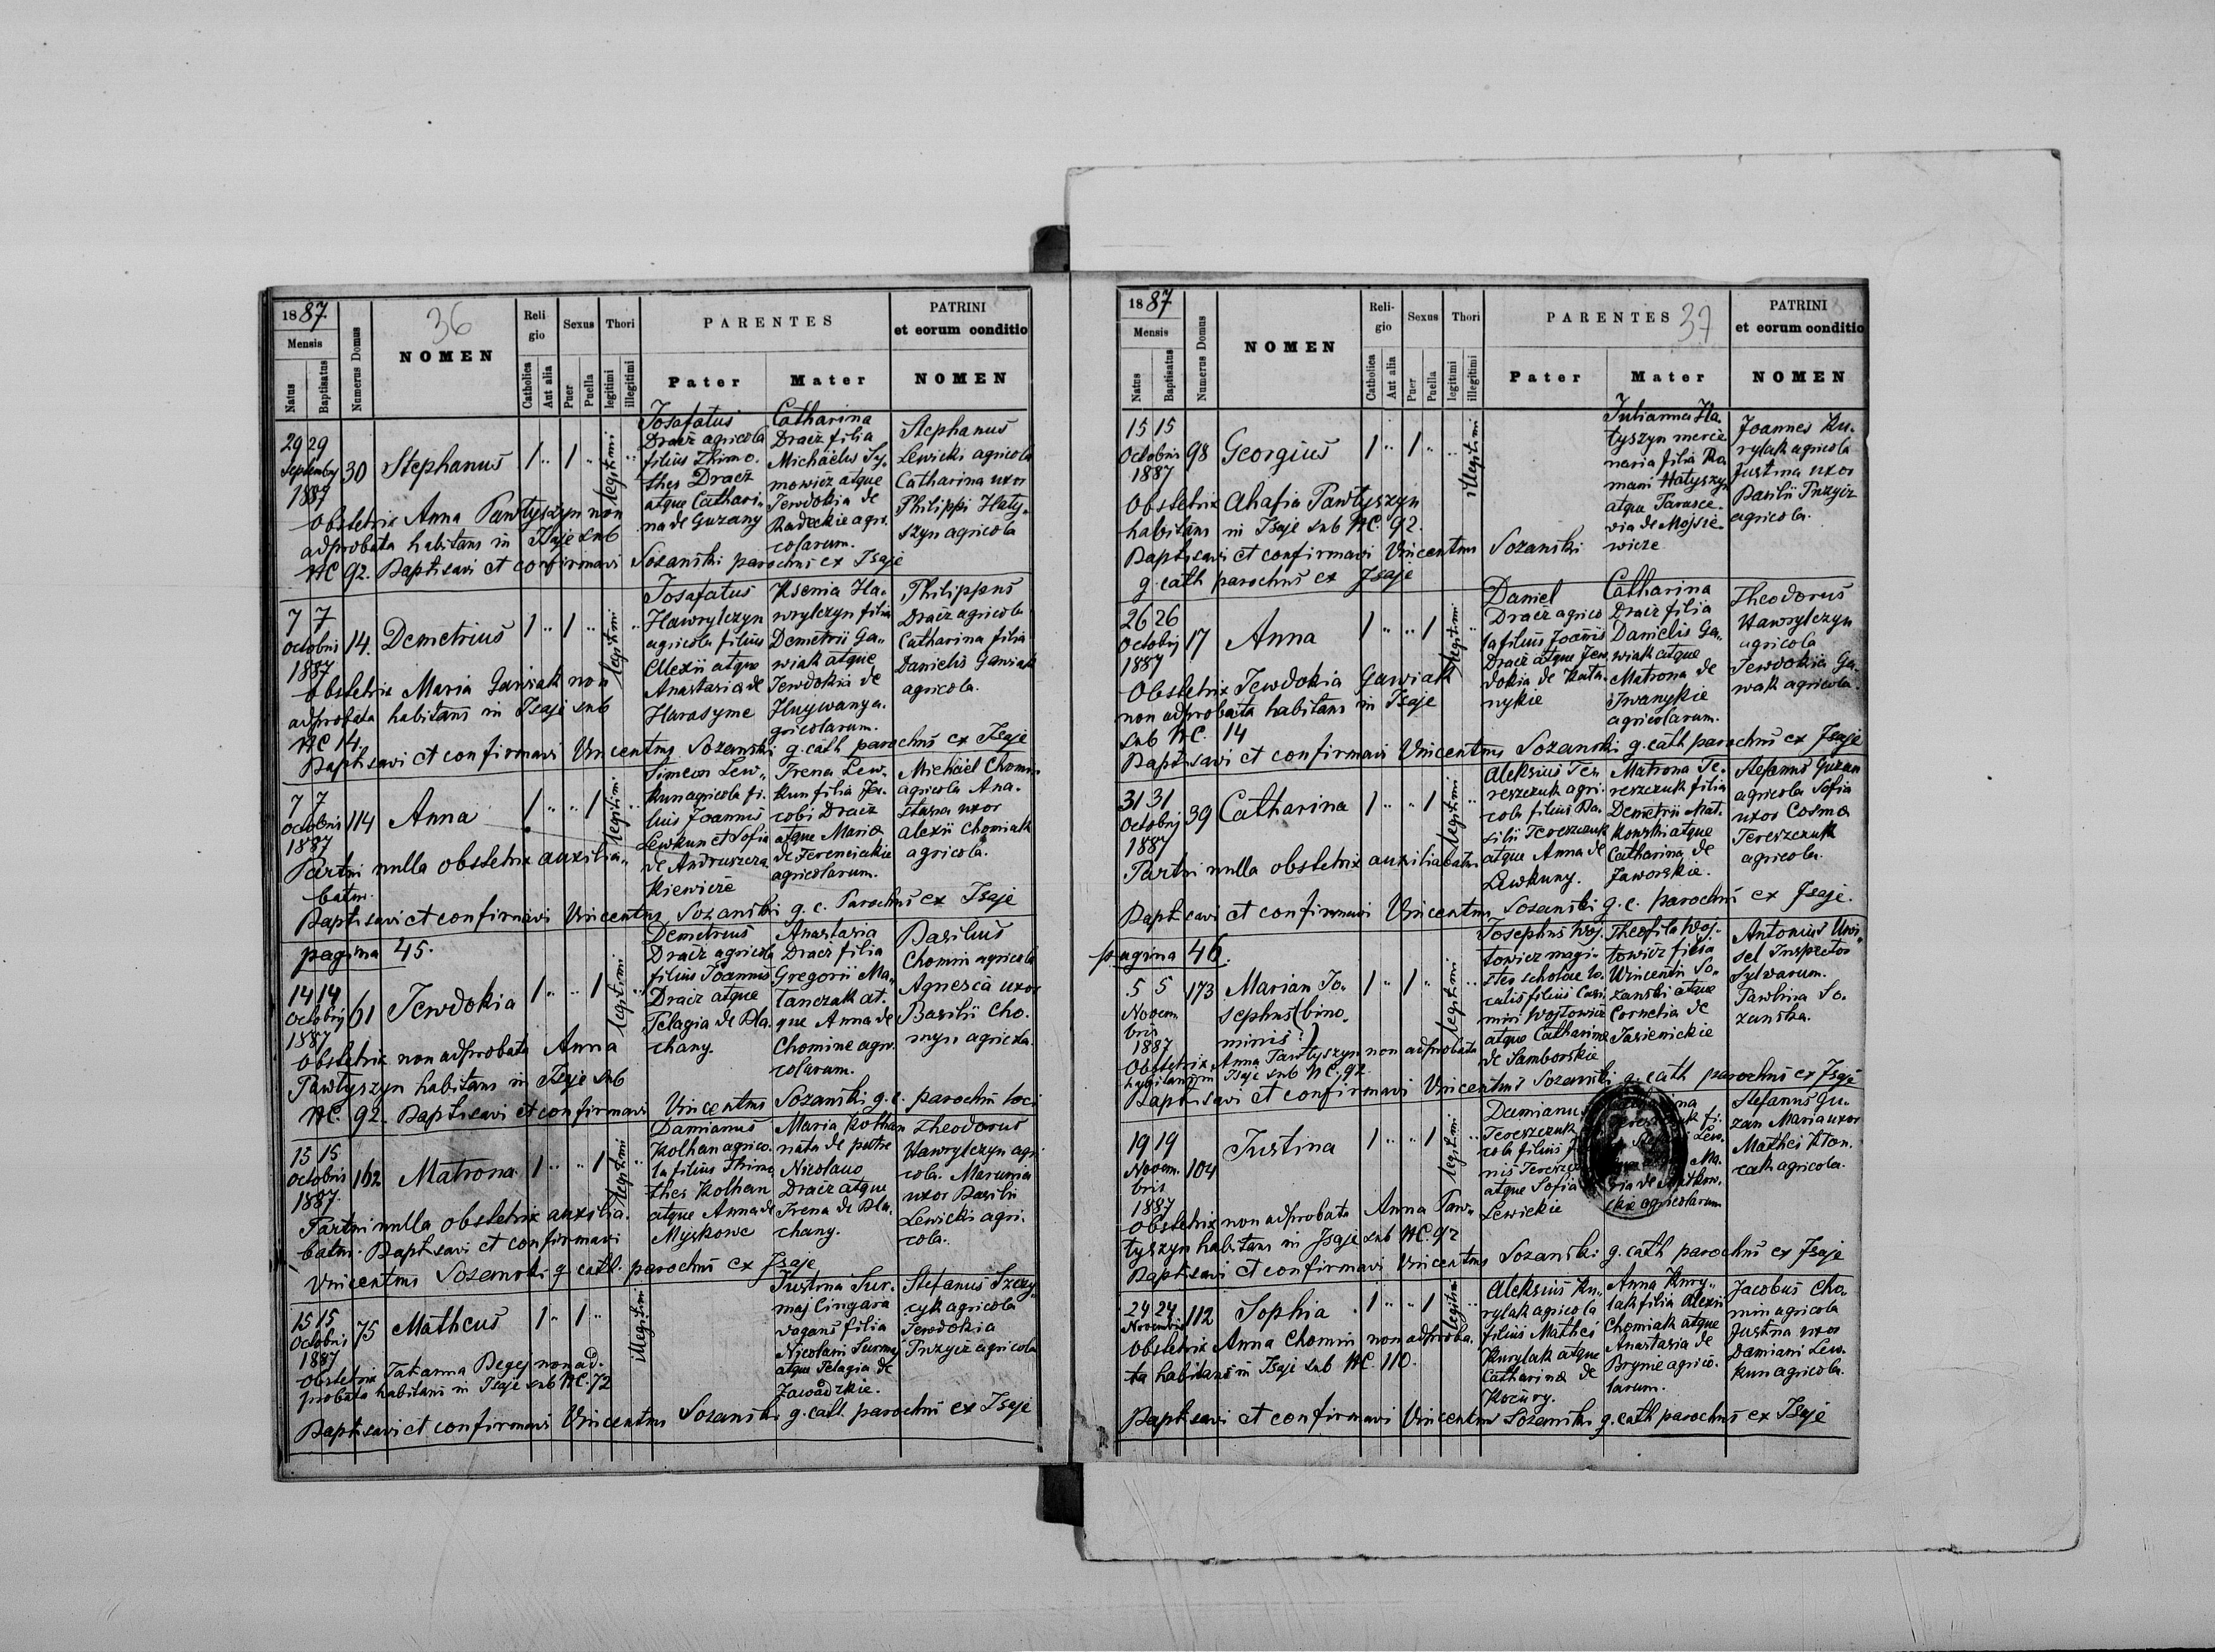 1887
Mensis
Natus
Baptisatus
Numerus Domus
36
NOMEN
Reli
gio
Catholica
Aut alia
Sexus
Puer
Puella
Thori
legitimi
illegitimi
PARENTES
Pater
Mater
PATRINI
et eorum conditio
NOMEN
29 29
Septembr
1887
30
Stephanus
1 " 1 "
legitimi
Josafatus
Dracz agricola
filius Thimo.
thei Dracz
atque Cathari„
na de Guzany
Catharina
Dracz filia
Michaelis Sy.
mowicz atque
Jewdokia de
Radeckie agri.
colarum.
Stephanus
Lewicki agricola
Catharina uxor
Philippi Haty.
szyn agricola
Obstetrix Anna Pawtyszyn non
adprobata habitans in Isaje sub
NC 92. Baptisavi et confirmavi Sozański parochus ex Isaje
7 7
Octobris
1887
14.
Demetrius
1 " 1 "
legitimi
Josafatus
Hawrylczyn
agricola filius
Alexii atque
Anastasia de
Harasyme
Ksenia Ha.
wrylczyn filia
Demetrii Ga„
wiak atque
Jewdokia de
Hnywany a.
gricolarum.
Philippus
Dracz agricola
Catharina filia
Danielis Gawiak
agricola.
Obstetrix Maria Gawiak non
adprobata habitans in Isaje sub
NC 14.
Baptisavi et confirmavi Vincentius Sozanski g. cath parochus ex Isaje
7 7
Octobris
1887
114
Anna
1 " " 1
legitimi
Simeon Lew„
kun agricola fi.
lius Joannis
Lewkun et Sofia
de Andruszcza
kiewicze
Irena Lew.
kun filia Ja.
cobi Dracz
atque Maria
de Ferenciakie
agricolarum.
Michael Chomin
agricola Ana.
stasia uxor
Alexii Chomiak
agricola.
Partui nulla obstetrix auxilia„
batur.
Baptisavi et confirmavi Vincentius Sozanski g. c. Parochus ex Isaje
pagina 45.
14 14
Octobris
1887
61
Jewdokia
1 " " 1
legitimi
Demetrius
Dracz agricola
filius Joannis
Dracz atque
Pelagia de Bla.
chany.
Anastasia
Dracz filia
Gregorii Ma„
tanczak at.
que Anna de
Chomine agri.
colarum.
Basilius
Chomin agricola
Agnesca uxor
Basilii Cho.
myn agricola.
Obstetrix non adprobata Anna
Pawtyszyn habitans in Isaje sub
NC. 92. Baptisavi et confirmavi Vincentius Sozański g. c. parochus loci
15 15
Octobris
1887
162
Matrona
1 " " 1
legitimi
Damianus
Kolhan agrico.
la filius Thimo
thei Kolhan
atque Anna de
Myskowe
Maria Kolhan
nata de patre
Nicolao
Dracz atque
Irena de Bla.
chany.
Theodorus
Hawrylczyn agri
cola. Marunia
uxor Basilii
Lewicki agri.
cola.
Partui nulla obstetrix auxilia.
batur. Baptisavi et confirmavi
Vincentius Sozanski g. cath. parochus ex Isaje
15 15
Octobris
1887
75
Matheus
1 " 1 "
illegitimi
Justina Sur.
maj Cingara
vagans filia
Nicolai Surmaj
atque Pelagia de
Zawadzkie.
Stefanus Szczy
cyk agricola
Jewdokia
Przyiz agricola
Obstetrix Tatianna Degej non ad.
probata habitans in Isaje sub NC. 72
Baptisavi et confirmavi Vincentius Sozanski g. cath. parochus ex Isaje
1887
Mensis
Natus
Baptisatus
Numerus Domus
NOMEN
Reli-
gio
Catholica
Aut alia
Sexus
Puer
Puella
Thori
legitimi
illegitimi
PARENTES 37
Pater
Mater
PATRINI
et eorum conditio
NOMEN
15 15
Octobris
1887
98
Georgius
1 " 1 "
illegitimi
Julianna Ha.
tyszyn merce.
naria filia Ro
mani Hatyszyn
atque Parasce.
via de Mojsie.
wicze
Joannes Ku.
rylak agricola
Justina uxor
Basilii Przyiz
agricola.
Obstetrix Ahafia Pawtyszyn
habitans in Isaje sub NC. 92.
Baptisavi et confirmavi Vincentius Sozanski
g. cath parochus ex Isaje
26 26
Octobris
1887
17
Anna
1 " " 1
legitimi
Daniel
Dracz agrico
la filius Joannis
Dracz atque Jew
dokia de Kata.
nykie
Catharina
Dracz filia
Danielis Ga„
wiak atque
Matrona de
Iwanykie
agricolarum.
Theodorus
Hawrylczyn
agricola
Jewdokia Ga.
wak agricola.
Obstetrix Jewdokia Gawiak
non adprobata habitans in Isaje
sub NC. 14
Baptisavi et confirmavi Vincentius Sozanski g. cath parochus ex Isaje
31 31
Octobris
1887
39
Catharina
1 " " 1
legitimi
Aleksius Te„
reszczuk agri.
cola filius Ba.
silii Tereszczuk
atque Anna de
Lewkuny.
Matrona Te.
reszczuk filia
Demetrii Mat.
kowski atque
Catharina de
Jaworskie.
Stefanus Guzan
agricola Sofia
uxor Cosma
Tereszczuk
agricola.
Partui nulla obstetrix auxiliabatur
Baptisavi et confirmavi Vincentius Sozanski g. c. parochus ex Isaje.
pagina 46.
5 5
Novem
bris
1887
173
Marian Jo.
sephus (bino.
minis)
1 " 1 "
legitimi
Josephus Woj.
towicz magi.
ster scholae lo.
calis filius Casi
miri Wojtowicz
atque Catharina
de Samborskie
Theofila Woj.
towicz filia
Wincentii So„
zanski atque
Cornelia de
Jasienickie
Antonius Uwi„
sel Inspector
Sylvarum.
Pawlina So.
zanska.
Obstetrix Anna Pawtyszyn non adprobata
habitans in Isaje sub NC. 92
Baptisavi et confirmavi Vincentius Sozanski g. cath parochus ex Isaje
19 19
Novem.
bris
1887
104
Justina
1 " " 1
legitimi
Damianus
Tereszczuk
cola filius
nis
atque Sofia
Lewickie
fi.
Lew.
Ma.
ria de Matkow.
skie agricolarum
Stefanus Gu„
zan Maria uxor
Mathei Kton.
cak agricola.
Obstetrix non adprobata Anna Paw„
tyszyn habitans in Isaje sub NC. 92
Baptisavi et confirmavi Vincentius Sozanski g. cath parochus ex Isaje
24 24
Novembris
112
Sophia
1 " " 1
legitima
Aleksius Ku„
rylak agricola
filius Mathei
Kurylak atque
Catharina de
Kociury.
Anna Kury„
lak filia Alexii
Chomiak atque
Anastasia de
Brynie agrico.
larum.
Jacobus Cho„
min agricola
Justina uxor
Damiani Lew.
kun agricola.
Obstetrix Anna Chomin non adproba.
ta habitans in Isaje sub NC. 110.
Baptisavi et confirmavi Vincentius Sozanski g. cath parochus ex Isaje